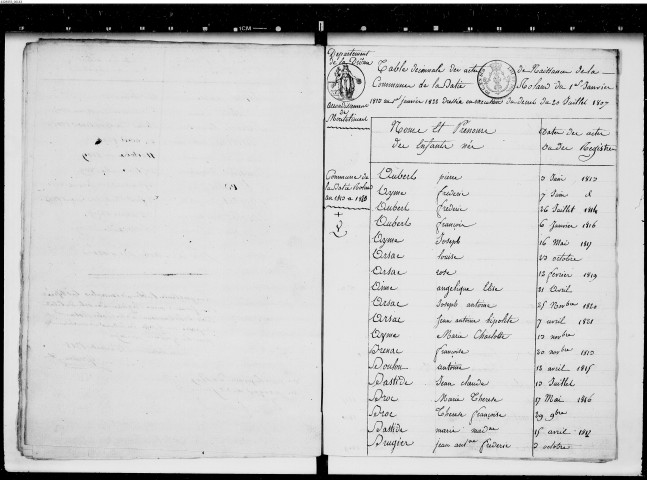 Département
de la Drôme
Arrondissement
de
Montélimart
Commune de
la Batie Roland
an 1813 a 1823
Table décennale des actes de Naissance de la
Commune de la Batie Roland du 1er Janvier
1813 au 1er janvier 1823 dressée en execution du decret du 20 Juillet 1807
Noms et Prénoms Dates des actes
des Enfants nés ou des Registres
Aubert pierre 3 Juin 1813
Ayme frederic 7 Juin d
Aubert frederic 26 Juillet 1814
Aubert françois 6 Janvier 1816
Ayme Joseph 16 Mai 1817
Arsac louise 23 octobre
Arsac rose 12 fevrier 1819
Aime angelique Elise 21 Avril
Arsac Joseph antoine 25 Novbre 1820
Arsac Jean antoine hipolite 7 avril 1821
Ayme Marie Charlotte 13 novbre
Brenac françoise 20 novbre 1813
Boulon antoine 13 avril 1815
Bastide Jean claude 13 Juillet
Broc Marie Therese 17 Mai 1816
Broc Therese françoise 29 9bre
Bastide marie 15 avril 1817
Brugier jean antne frederic 3 octobre